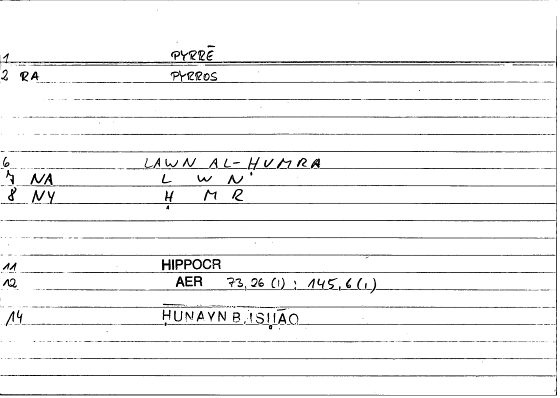 1 PYRRĒ
2 RA PYRROS
6 LAWN AL-HUMRA
7 NA L W N
8 NY Ḥ M R
11 HIPPOCR
12 AER 73,26 (1) : 145,6 (1)
14 ḤUNAYN B. ISḤĀQ